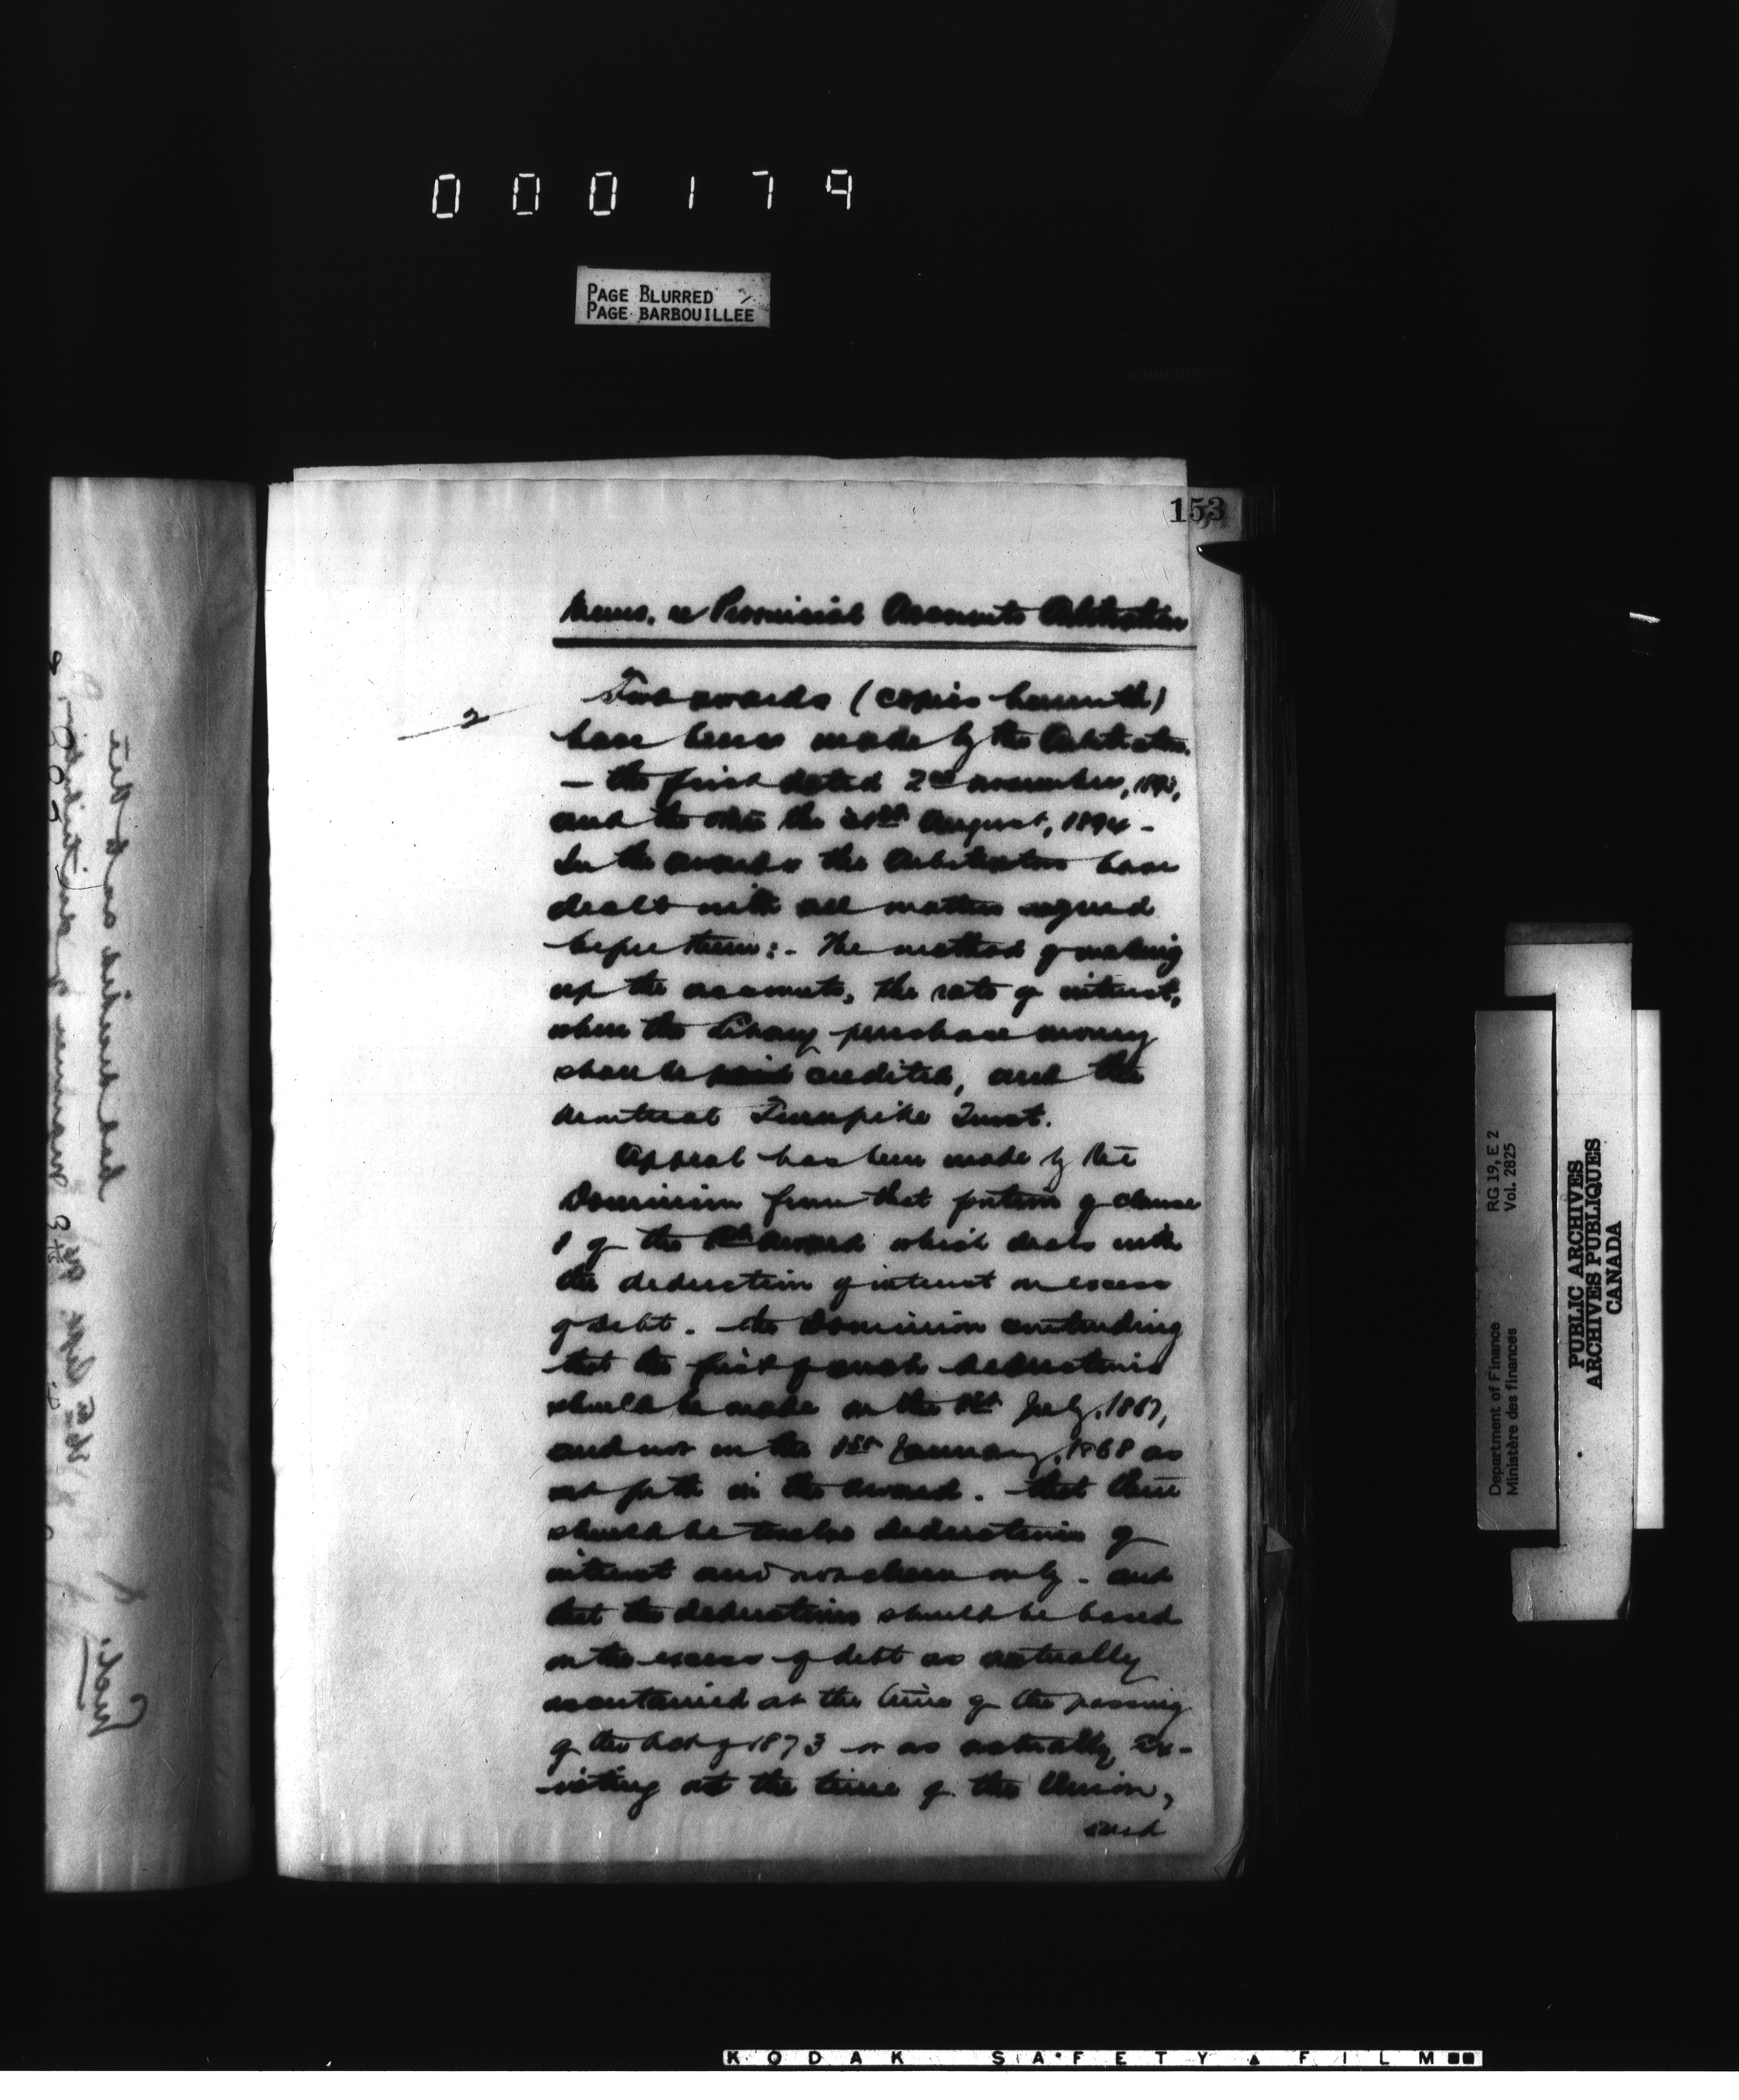 000179
PAGE BLURRED
PAGE BARBOUILLEE
153
Memo. re Provincial Accounts Arbitration
2
Two awards (copies herewith)
have been made by the Arbitrators
— the first dated 2nd November, 1893,
and the other the August, 1894 -
In the awards the Arbitrators have
dealt with all matters argued
before them:- The method of making
up the accounts, the rate of interest,
when the Library purchase money
should be credited, and the
Montreal Turnpike Trust.
Appeal has been made by the
Dominion from that portion of clause
1 of the award which deals with
the deduction of interest on excess
of debt. the Dominion contending
that the first of such deductions
should be made on the 1st July, 1867,
and not on the 1st January, 1868 as
set forth in the award. that there
should be twelve deductions of
interest and not eleven only - and
that the deductions should be based
on the excess of debt as actually
ascertained at the time of the passing
of the Act of 1873 or as actually ex-
isting at the time of the Union,
and
Department of Finance
Ministère des finances
RG 19, E 2
Vol. 2825
PUBLIC ARCHIVES
ARCHIVES PUBLIQUES
CANADA
KODAK SAFETY FILM